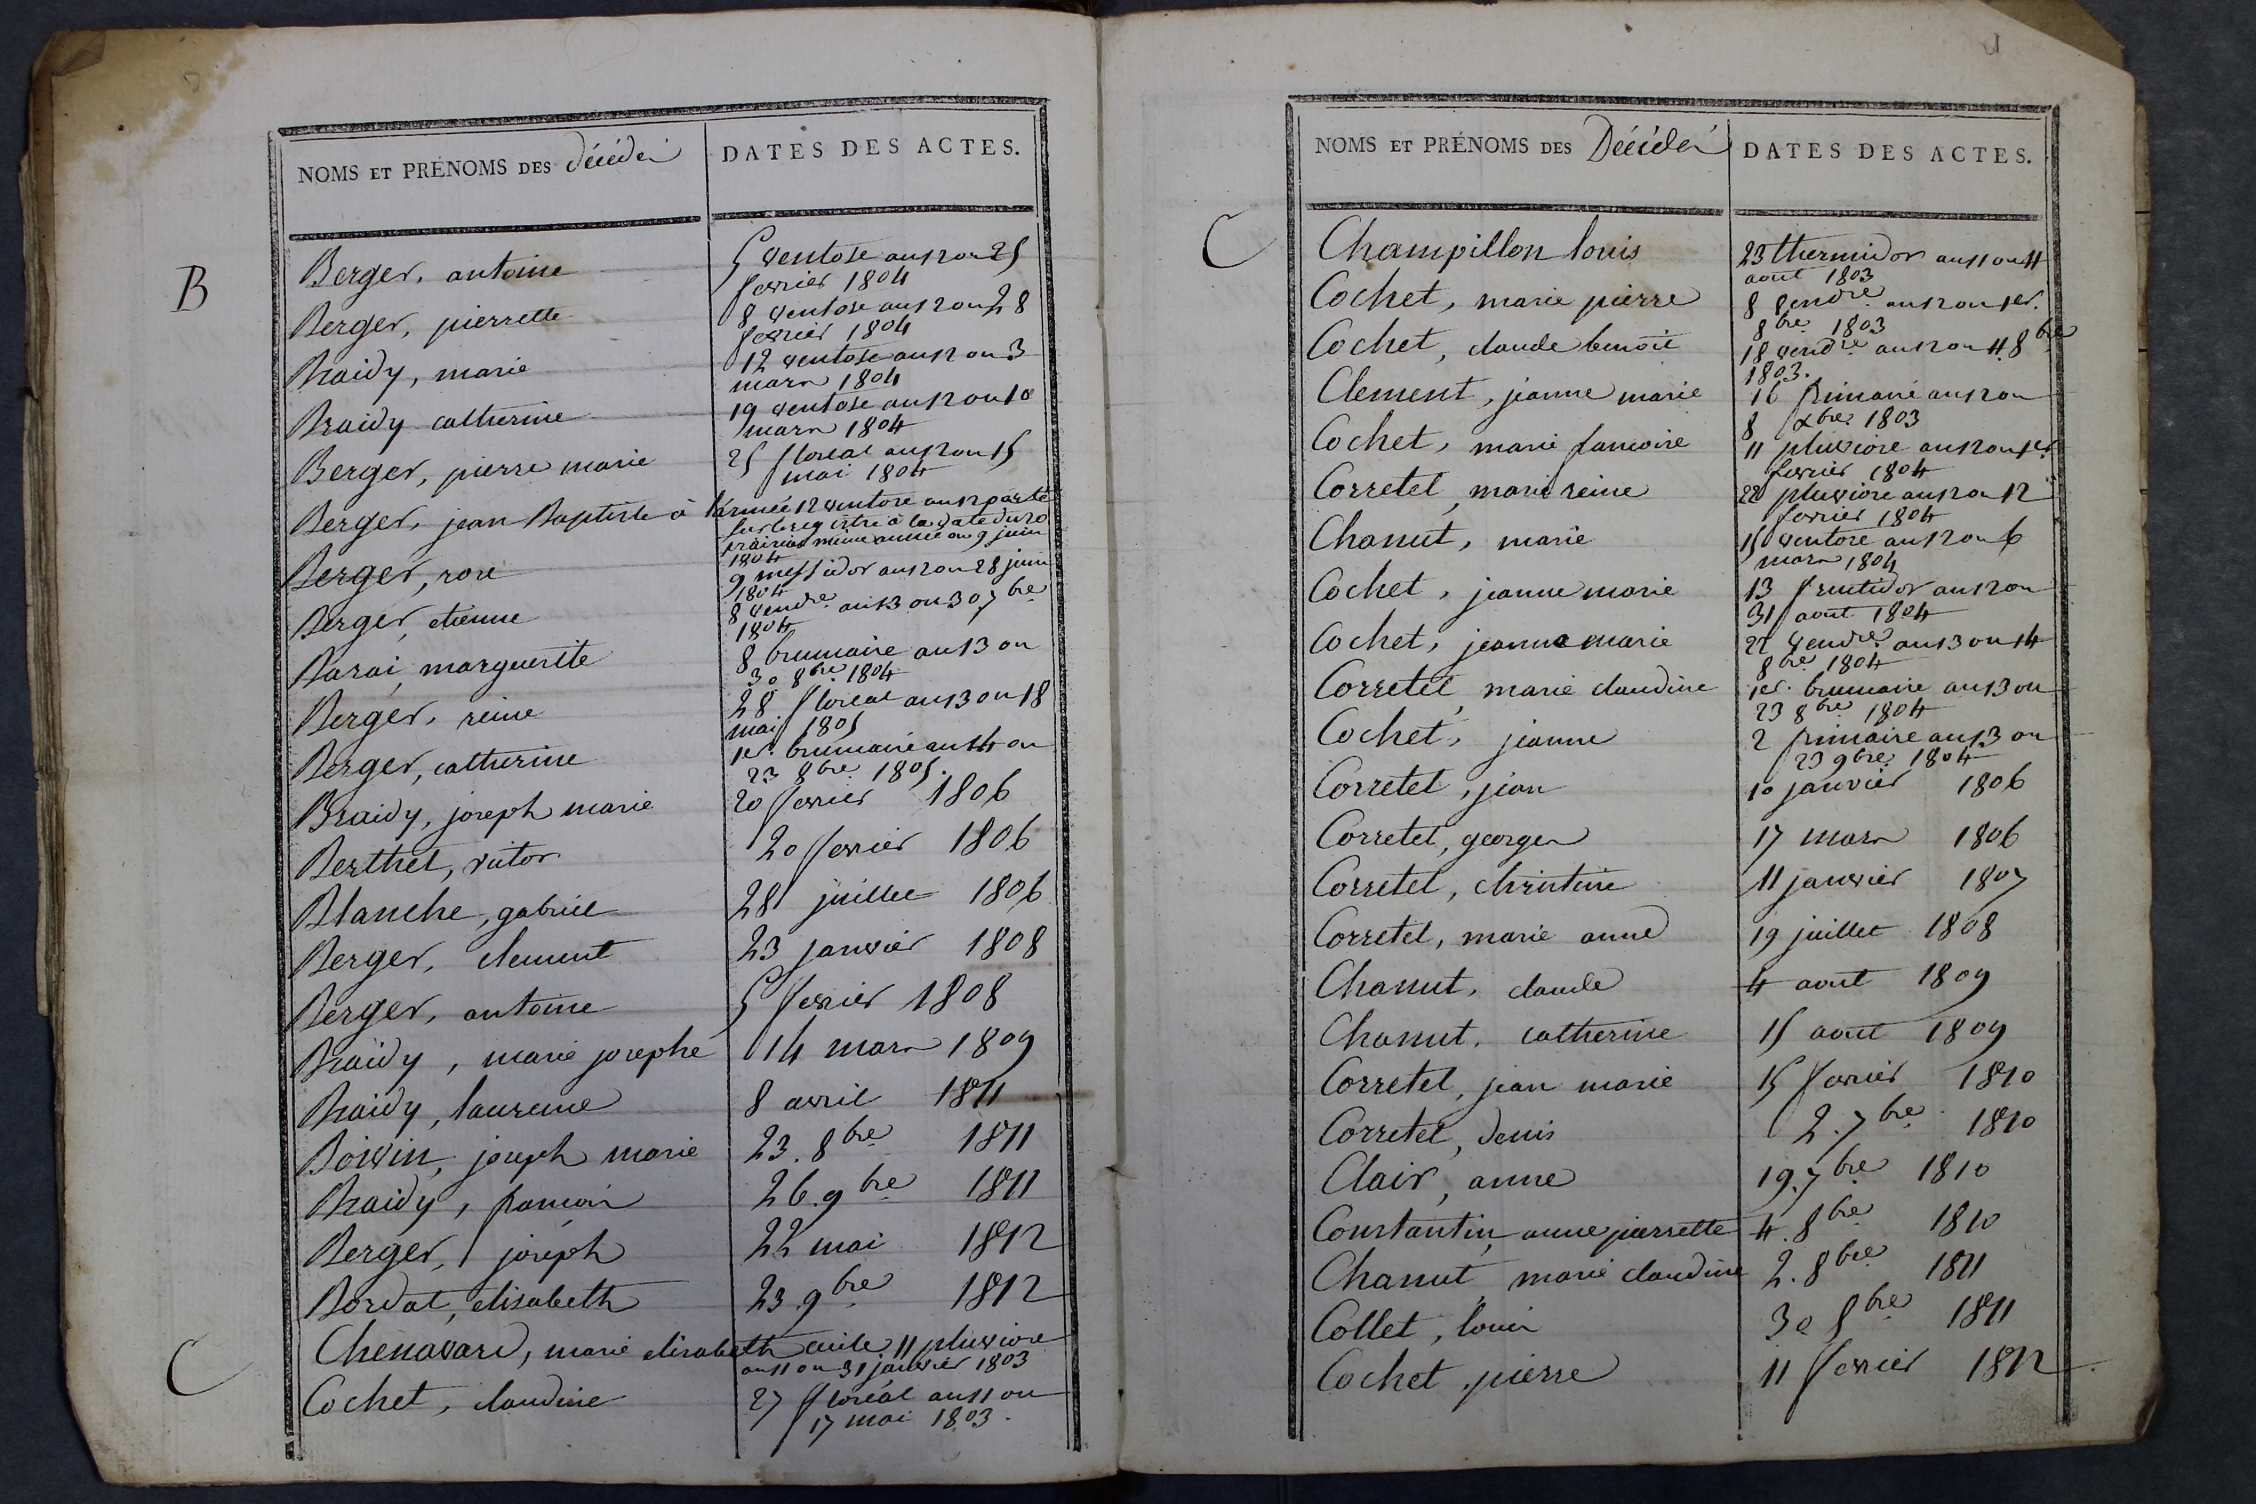 NOMS ET PRÉNOMS DES décédés
DATES DES ACTES.
B
Berger, antoine
5 ventose an 12 ou 25
fevrier 1804
Berger, pierrette
8 ventose an 12 ou 28
fevrier 1804
Braidy, marie
12 ventose an 12 ou 3
mars 1804
Braidy catherine
19 ventose an 12 ou 10
mars 1804
Berger, pierre marie
25 floreal an 12 ou 15
mai 1804
Berger, jean Baptiste à l'armée 12 ventose an 12 porté
sur le registre à la date du 20
prairial même année ou 9 juin
1804
Berger, rose
9 messidor an 12 ou 28 juin
1804
Berger, etienne
8 vendre. an 13 ou 30 7bre
1804
Barai, marguerite
8 brumaire an 13 ou
30 8bre 1804
Berger, reine
28 floreal an 13 ou 18
mai 1805
Berger, catherine
1er. brumaire an 14 ou
23 8bre 1805.
Braidy, joseph marie
20 fevrier 1806
Berthet, victor
20 fevrier 1806
Blanche, gabriel
28 juillet 1806
Berger, clement
23 janvier 1808
Berger, antoine
5 fevrier 1808
Braïdy, marie josephe
14 mars 1809
Braidy, laurence
8 avril 1811
Boivin, joseph marie
23. 8bre 1811
Braidy, francois
26. 9bre 1811
Berger, joseph
22 mai 1812
Bordat, elisabeth
23. 9bre 1812
C
Chenavard, marie elisabeth cecile 11 pluviose
an 11 ou 31 janvier 1803
Cochet, claudine
27 floréal an 11 ou
17 mai 1803.
NOMS ET PRÉNOMS DES Décédés
DATES DES ACTES.
C
Champillon louis
23 thermidor an 11 ou 11
aout 1803
Cochet, marie pierre
8 vendre. an 12 ou 1er.
8bre 1803
Cochet, claude benoit
18 vendre an 12 ou 11 8bre
1803.
Clement, jeanne marie
16 frimaire an 12 ou
8 xbre 1803
Cochet, marie francoise
11 pluviose an 12 ou 1er
fevrier 1804
Corretel, marie reine
22 pluviose an 12 ou 12
fevrier 1804
Chanut, marie
15 ventose an 12 ou 6
mars 1804
Cochet, jeanne marie
13 fructidor an 12 ou
31 aout 1804
Cochet, jeanne marie
22 vendre an 13 ou 14
8bre 1804
Corretel, marie claudine
1er. brumaire an 13 ou
23 8bre 1804
Cochet, jeanne
2 frimaire an 13 ou
23 9bre 1804
Corretel, jean
10 janvier 1806
Corretel, georges
17 mars 1806
Corretel, christine
11 janvier 1807
Corretel, marie anne
19 juillet 1808
Chanut, claude
4 aout 1809
Chanut, catherine
15 aout 1809
Corretel, jean marie
15 fevrier 1810
Corretel, denis
2. 7bre 1810
Clair, anne
19. 7bre 1810
Constantin, anne pierrette
4. 8bre 1810
Chanut, marie claudine
2. 8bre 1811
Collet, louis
30 8bre 1811
Cochet, pierre
11 fevrier 1812